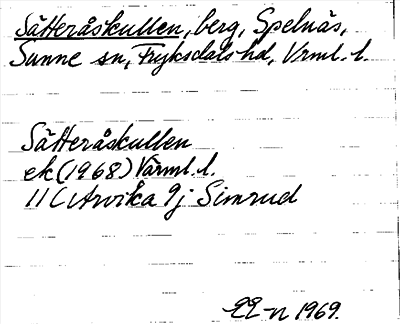 Sätteråskullen, berg, Spelnäs,
Sunne sn, Fryksdals hd, Vrml. l.
Sätteråskullen
ek (1968) Värml. l.
11 C Arvika 9j Simrud
1969.